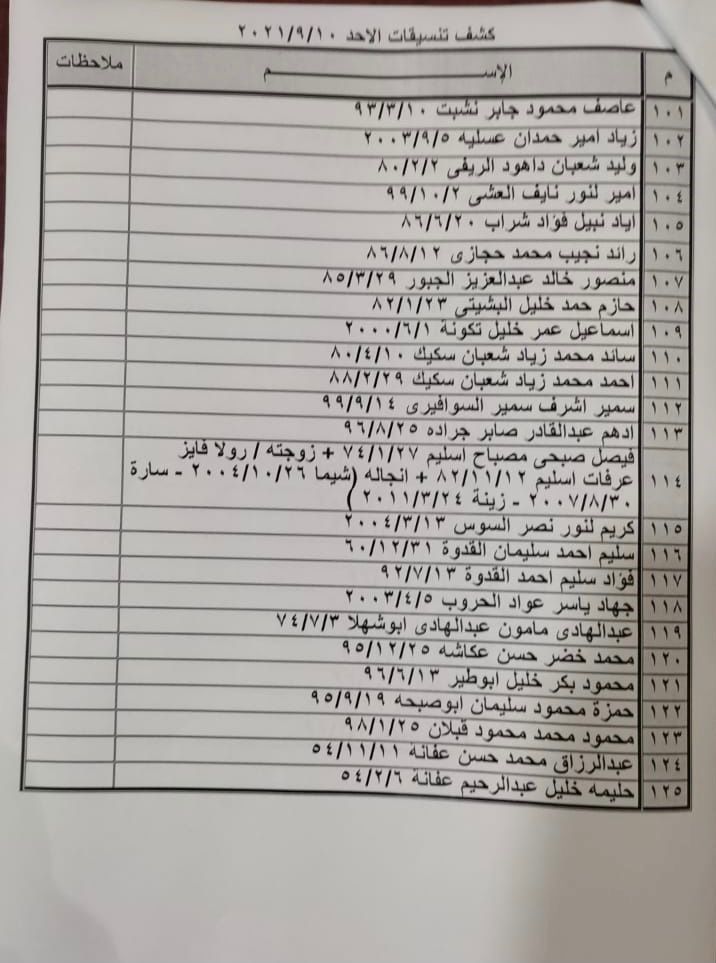 كشف تنسيقات الاحد ٢٠٢١/٩/١٠
م الإســـــــــم ملاحظات
١٠١ عاصف محمود جابر نشبت ٩٣/٣/١٠
١٠٢ زياد امير حمدان عسليه ٢٠٠٣/٩/٥
١٠٣ وليد شعبان داهود الريفى ٨٠/٢/٢
١٠٤ امير لنور نايف العشى ٩٩/١٠/٢
١٠٥ اياد نبيل فؤاد شراب ٨٦/٦/٢٠
١٠٦ رائد نجيب محمد حجازى ٨٦/٨/١٢
١٠٧ منصور خالد عبدالعزيز الجبور ٨٥/٣/٢٩
١٠٨ حازم حمد خليل البشيتى ٨٢/١/٢٣
١٠٩ اسماعيل عمر خليل تكونة ٢٠٠٠/٦/١
١١٠ سائد محمد زياد شعبان سكيك ٨٠/٤/١٠
١١١ احمد محمد زياد شعبان سكيك ٨٨/٢/٢٩
١١٢ سمير اشرف سمير السوافيرى ٩٩/٩/١٤
١١٣ ادهم عبدالقادر صابر جراده ٩٦/٨/٢٥
فيصل صبحى مصباح اسليم ٧٤/١/٢٧ + زوجته / رولا فايز
١١٤ عرفات اسليم ٨٢/١١/١٢ + انجاله (شيما ٢٠٠٤/١٠/٢٦ - سارة
٢٠٠٧/٨/٣٠ - زينة ٢٠١١/٣/٢٤ )
١١٥ كريم لنور نصر السوس ٢٠٠٤/٣/١٣
١١٦ سليم احمد سليمان القدوة ٦٠/١٢/٣١
١١٧ فؤاد سليم احمد القدوة ٩٢/٧/١٣
١١٨ جهاد ياسر عواد الحروب ٢٠٠٣/٤/٥
١١٩ عبدالهادى مامون عبدالهادى ابوشهلا ٧٤/٧/٣
١٢٠ محمد خضر حسن عكاشه ٩٥/١٢/٢٥
١٢١ محمود بكر خليل ابوطير ٩٦/٦/١٣
١٢٢ حمزة محمود سليمان ابوصبحه ٩٥/٩/١٩
١٢٣ محمود محمد محمود قبلان ٩٨/١/٢٥
١٢٤ عبدالرزاق محمد حسن عفانة ٥٤/١١/١١
١٢٥ حليمه خليل عبدالرحيم عفانة ٥٤/٢/٦